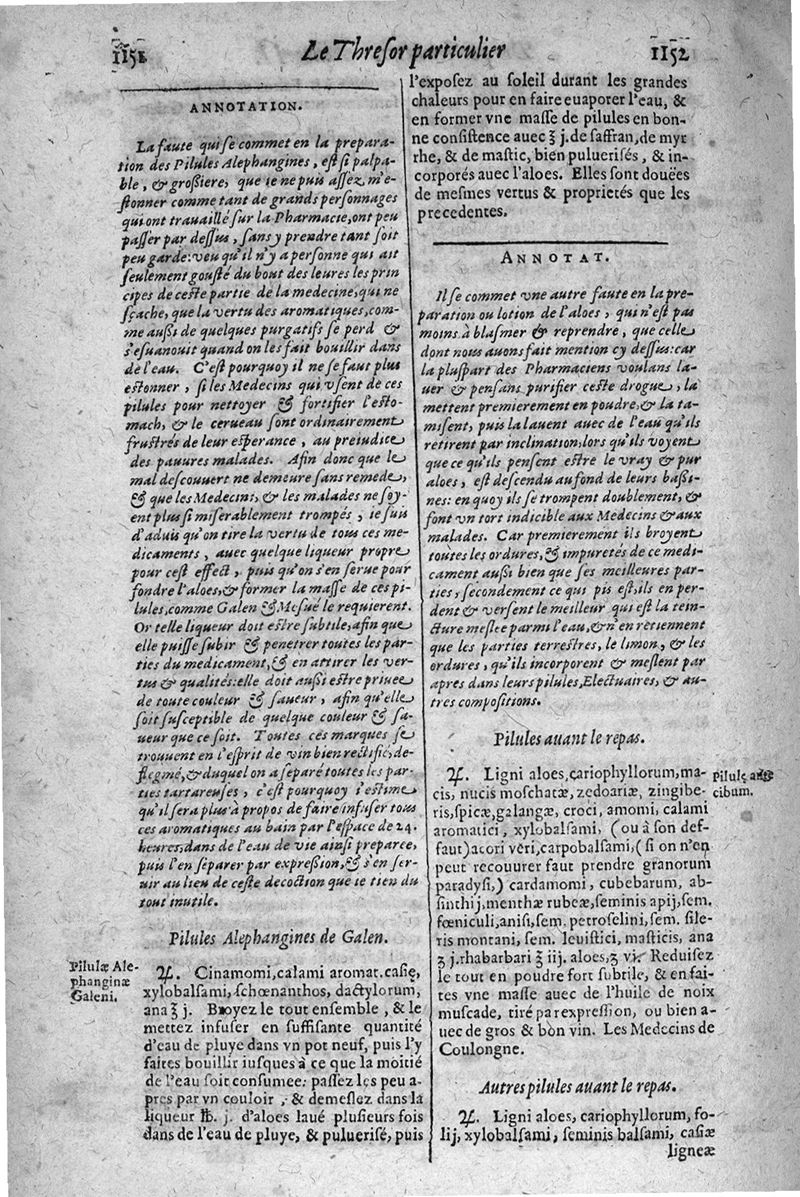 1151
Le Thresor particulier
1152
ANNOTATION.
La faute qui se commet en la prepara-
tion des Pilules Alephangines, est si palpa-
ble, & grossiere, que ie ne puis assez m'e-
stonner comme tant de grands personnages
qui ont trauaillé sur la Pharmacie, ont peu
passer par dessus, sans y prendre tant soit
peu garde: veu qu'il n'y a personne qui ait
seulement gousté du bout des leures les prin
cipes de ceste partie de la medecine, qui ne
sçache, que la vertu des aromatiques, com-
me aussi de quelques purgatifs se perd &
s'esuanouit quand on les fait bouillir dans
de l'eau. C'est pourquoy il ne se faut plus
estonner, si les Medecins qui vsent de ces
pilules pour nettoyer & fortifier l'esto-
mach, & le cerueau sont ordinairement
frustrés de leur esperance, au preiudice
des pauures malades. Afin donc que le
mal descouuert ne demeure sans remede,
& que les Medecins, & les malades ne soy-
ent plus si miserablement trompés, ie suis
d'aduis qu'on tire la vertu de tous ces me-
dicaments, auec quelque liqueur propre
pour cest effect, puis qu'on s'en serue pour
fondre l'aloes, & former la masse de ces pi-
lules, comme Galen & Mesué le requierent.
Or telle liqueur doit estre subtile, afin que
elle puisse subir & penetrer toutes les par-
ties du medicament, & en attirer les ver-
tus & qualités: elle doit aussi estre priuee
de toute couleur & saueur, afin qu'elle
soit susceptible de quelque couleur & sa-
ueur que ce soit. Toutes ces marques se
trouuent en l'esprit de vin bien rectifié, de-
flegmé, & duquel on a separé toutes les par-
ties tartareuses, c'est pourquoy i'estime
qu'il sera plus à propos de faire infuser tous
ces aromatiques au bain par l'espace de 24.
heures, dans de l'eau de vie ainsi preparee,
puis l'en separer par expression, & s'en ser-
uir au lieu de ceste decoction que ie tien du
tout inutile.
Pilules Alephangines de Galen.
Pilulæ Ale-
phanginæ
Galeni.
♃. Cinamomi, calami aromat. casię,
xylobalsami, schœnanthos, dactylorum,
ana ʒ j. Broyez le tout ensemble, & le
mettez infuser en suffisante quantité
d'eau de pluye dans vn pot neuf, puis l'y
faites bouillir iusques à ce que la moitié
de l'eau soit consumee: passez les peu a-
pres par vn couloir, & demeslez dans la
liqueur ℔. j. d'aloes laué plusieurs fois
dans de l'eau de pluye, & puluerisé, puis
l'exposez au soleil durant les grandes
chaleurs pour en faire euaporer l'eau, &
en former vne masse de pilules en bon-
ne consistence auec ʒ j. de saffran, de myr
rhe, & de mastic, bien puluerisés, & in-
corporés auec l'aloes. Elles sont douées
de mesmes vertus & proprietés que les
precedentes.
ANNOTAT.
Il se commet vne autre faute en la pre-
paration ou lotion de l'aloes, qui n'est pas
moins à blasmer & reprendre, que celle
dont nous auons fait mention cy dessus: car
la pluspart des Pharmaciens voulans la-
uer & pensans purifier ceste drogue, la
mettent premierement en poudre, & la ta-
misent, puis la lauent auec de l'eau qu'ils
retirent par inclination, lors qu'ils voyent
que ce qu'ils pensent estre le vray & pur
aloes, est descendu au fond de leurs bassi-
nes: en quoy ils se trompent doublement, &
font vn tort indicible aux Medecins & aux
malades. Car premierement ils broyent
toutes les ordures, & impuretés de ce medi-
cament aussi bien que ses meilleures par-
ties, secondement ce qui pis est, ils en per-
dent & versent le meilleur qui est la tein-
cture meslee parmi l'eau, & n'en retiennent
que les parties terrestres, le limon, & les
ordures, qu'ils incorporent & meslent par
apres dans leurs pilules, Electuaires, & au-
tres compositions.
Pilules auant le repas.
♃. Ligni aloes, cariophyllorum, ma-
cis, nucis moschatæ, zedoariæ, zingibe-
ris, spicæ, galangæ, croci, amomi, calami
aromatici, xylobalsami, (ou à son def-
faut) acori veri, carpobalsami, (si on n'en
peut recouurer faut prendre granorum
paradysi,) cardamomi, cubebarum, ab-
sinthij, menthæ rubeæ, seminis apij, sem.
fœniculi, anisi, sem. petroselini, sem. sile-
ris montani, sem. leuistici, masticis, ana
ʒ j. rhabarbari ʒ iij. aloes, ʒ vi. Reduisez
le tout en poudre fort subtile, & en fai-
tes vne masse auec de l'huile de noix
muscade, tiré par expression, ou bien a-
uec de gros & bon vin. Les Medecins de
Coulongne.
Pilulę ante
cibum.
Autres pilules auant le repas.
♃. Ligni aloes, cariophyllorum, fo-
lij, xylobalsami, seminis balsami, casiæ
ligneæ